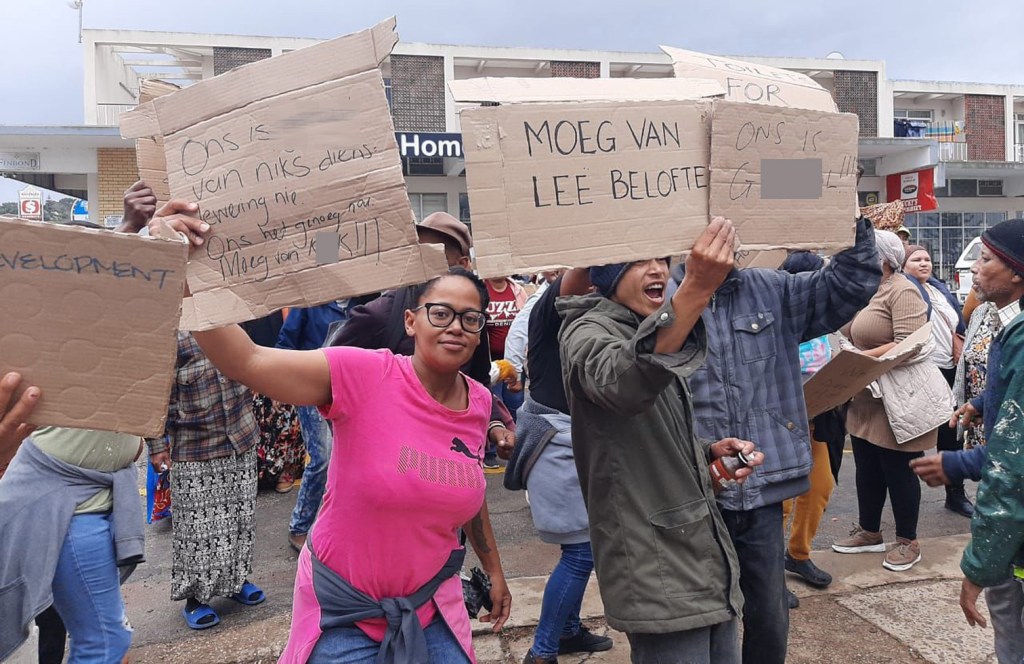 FINBOND
Home
TOILET
FOR
Ons is
van niks diens:
lewering nie
Ons het genoeg nou
Moeg van K K!!!
MOEG VAN
LEE BELOFTE
ONS IS
G L!!!
EVELOPMENT
PUMA
PUMA